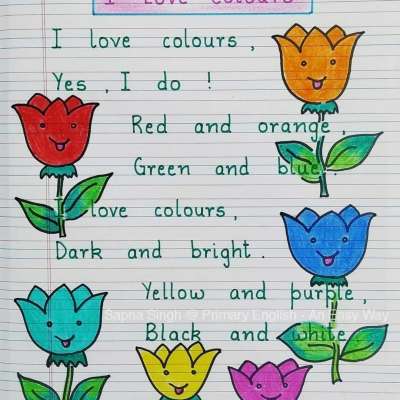 I Love Colours
I love colours,
Yes, I do !
Red and orange,
Green and blue.
I love colours,
Dark and bright.
Sapna Singh @ Primary English - An Easy Way
Yellow and purple,
Black and white